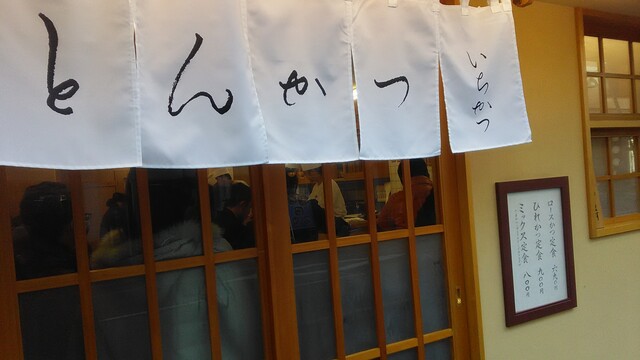 とんかつ
いちかつ
ロースかつ定食 六九〇円
ひれかつ定食 九〇〇円
ミックス定食 八〇〇円